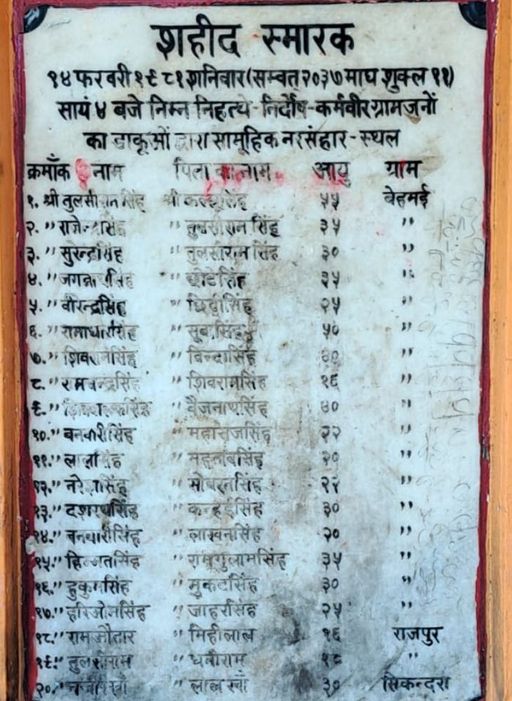 शहीद स्मारक
१४ फरवरी १९८१ शनिवार (सम्वत २०३७ माघ शुक्ल ११)
सायं ४ बजे निम्न निहत्थे-निर्दोष-कर्मवीर ग्रामजनों
का डाकूओं द्वारा सामूहिक नरसंहार-स्थल
क्रमाँक नाम पिता का नाम आयु ग्राम
१. श्री तुलसीराम सिंह श्री ५५ बेहमई
२. " राजेन्द्रसिंह " तुलसीराम सिंह ३५ "
३. " सुरेन्द्रसिंह " तुलसीराम सिंह ३० "
४. " जगन्नाथसिंह " छोटेसिंह ३५ "
५. " वीरेन्द्रसिंह " २५ "
६. " रामाधारसिंह " ५० "
७. " शिवरामसिंह " बिन्दासिंह "
८. " रामचन्द्रसिंह " शिवरामसिंह १६ "
९. " " बैजनाथसिंह ४० "
१०. " बनवारीसिंह " महाराजसिंह २२ "
११. " " महताबसिंह २० "
१२. " नरेशसिंह " सोबरनसिंह २२ "
१३. " दशरथसिंह " कन्हईसिंह ३० "
१४. " बनवारीसिंह " लाखनसिंह २० "
१५. " हिम्मतसिंह " रामगुलामसिंह ३५ "
१६. " हुकुमसिंह " मुकटसिंह ३० "
१७. " हरिओमसिंह " जाहरसिंह २५ "
१८. " रामऔतार " मिहीलाल १६ राजपुर
१९. " तुलसीराम " धनीराम १८ "
२०. " " लाल खाँ ३० सिकन्दरा